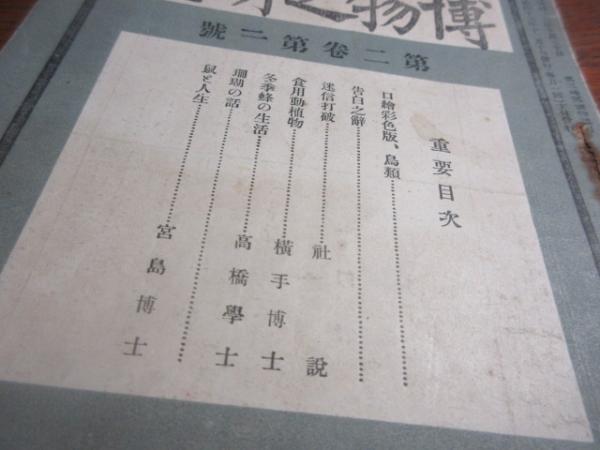 博物之
第二卷第二號
重要目次
口繪彩色版、鳥類
告白之辭
迷信打破 社說
食用動植物 橫手博士
冬季蜂の生活 高橋學士
珊瑚の話
鼠と人生 宮島博士